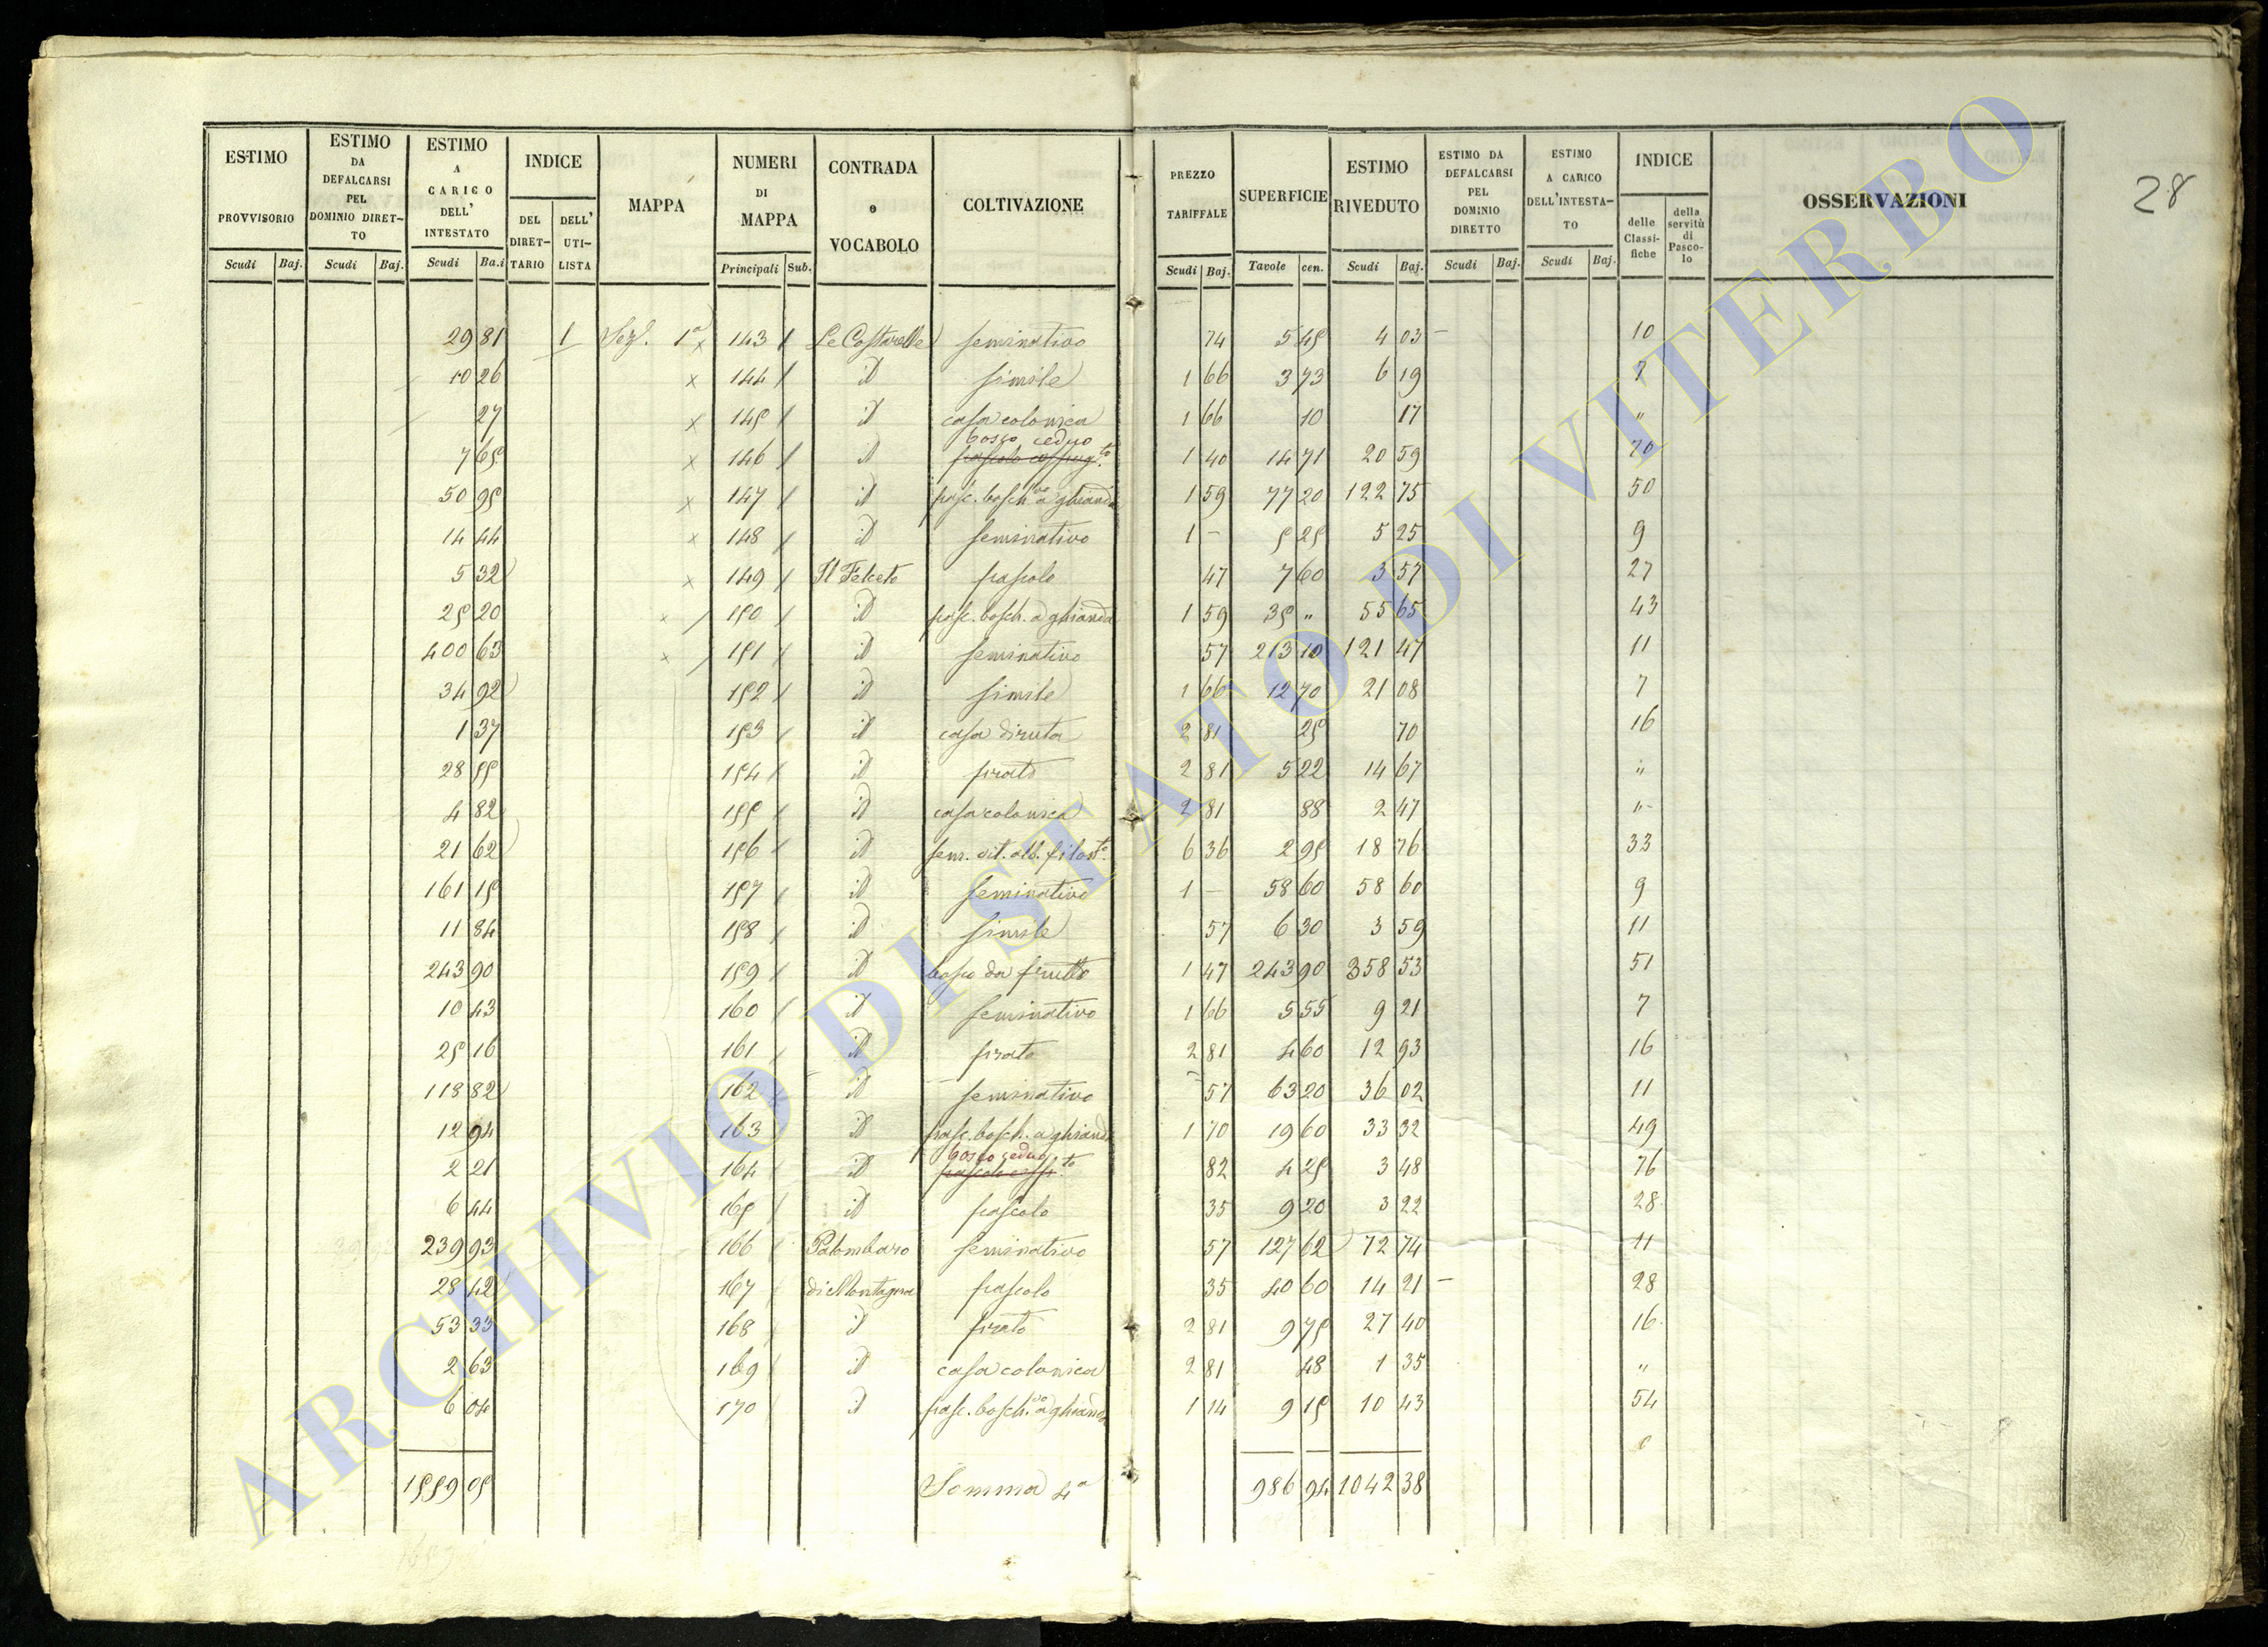 28
ESTIMO PROVVISORIO
ESTIMO DA DEFALCARSI PEL DOMINIO DIRET-TO
ESTIMO A CARICO DELL' INTESTATO
INDICE
DEL DIRET-TARIO
DELL' UTI-LISTA
MAPPA
NUMERI DI MAPPA
CONTRADA o VOCABOLO
COLTIVAZIONE
PREZZO TARIFFALE
SUPERFICIE
ESTIMO RIVEDUTO
ESTIMO DA DEFALCARSI PEL DOMINIO DIRETTO
ESTIMO A CARICO DELL'INTESTA-TO
INDICE
delle Classi-fiche
della servitù di Pasco-lo
OSSERVAZIONI
Scudi Baj. Scudi Baj. Scudi Ba.i Principali Sub. Scudi Baj. Tavole cen. Scudi Baj. Scudi Baj. Scudi Baj.
29 81 1 Sez. 1a x 143 Le Costarelle seminativo 74 5 45 4 03 10
10 26 x 144 id simile 1 66 3 73 6 19 7
27 x 145 id casa colonica 1 66 10 17 "
bosco ceduo
7 65 x 146 id pascolo cespug.to 1 40 14 71 20 59 70
50 95 x 147 id pasc. bosch.vo a ghianda 1 59 77 20 122 75 50
14 44 x 148 id seminativo 1 - 5 25 5 25 9
5 32 x 149 Il Felceto pascolo 47 7 60 3 57 27
25 20 x 150 id pasc. bosch. a ghianda 1 59 35 " 55 65 43
400 63 x 151 id seminativo 57 213 10 121 47 11
34 92 152 id simile 1 66 12 70 21 08 7
1 37 153 id casa diruta 2 81 25 70 16
28 55 154 id prato 2 81 5 22 14 67 "
4 82 155 id casa colonica 2 81 88 2 47 "
21 62 156 id sem. vit. alb. filont.o 6 36 2 95 18 76 33
161 15 157 id seminativo 1 - 58 60 58 60 9
11 84 158 id simile 57 6 30 3 59 11
243 90 159 id bosco da frutto 1 47 243 90 358 53 51
10 43 160 id seminativo 1 66 5 55 9 21 7
25 16 161 id prato 2 81 4 60 12 93 16
118 82 162 id seminativo 57 63 20 36 02 11
12 94 163 id pasc. bosch. a ghianda 1 70 19 60 33 32 49
bosco ceduo
2 21 164 id pascolo cesp.to 82 4 25 3 48 76
6 44 165 id pascolo 35 9 20 3 22 28
239 93 166 Palombaro seminativo 57 127 62 72 74 11
28 42 167 di Montagna pascolo 35 40 60 14 21 28
53 33 168 id prato 2 81 9 75 27 40 16
2 63 169 id casa colonica 2 81 48 1 35 "
6 04 170 id pasc. bosch.vo a ghianda 1 14 9 15 10 43 54
1559 05 Somma 4a 986 94 1042 38
ARCHIVIO DI STATO DI VITERBO